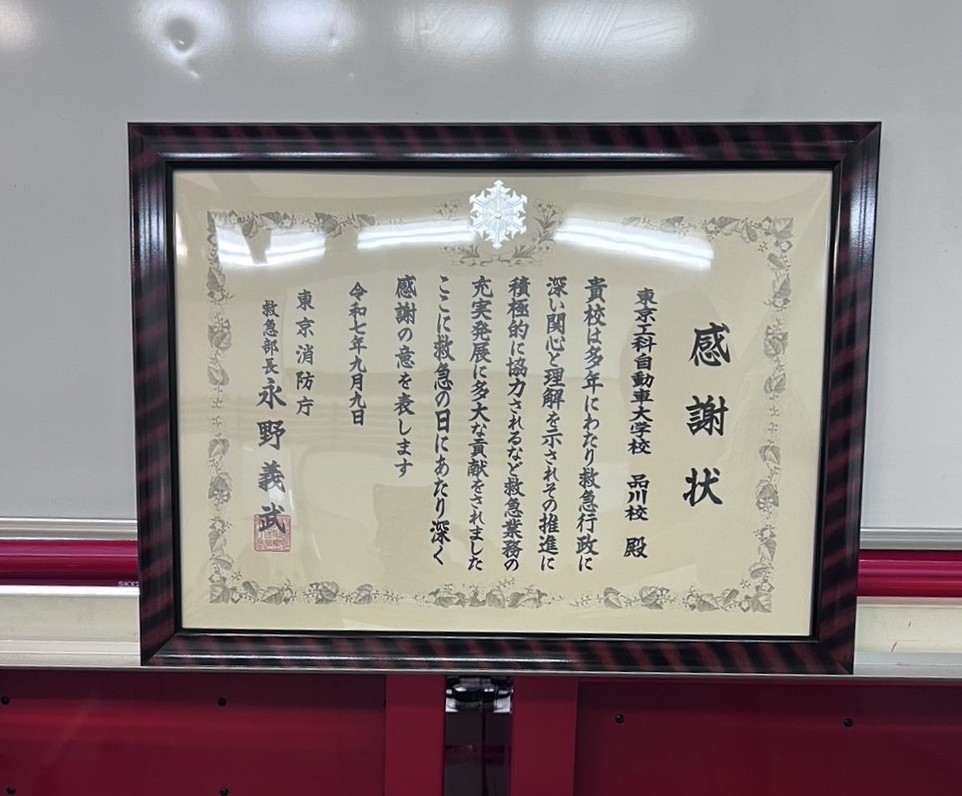 感謝状
東京工科自動車大学校 品川校 殿
貴校は多年にわたり救急行政に
深い関心と理解を示されその推進に
積極的に協力されるなど救急業務の
充実発展に多大な貢献をされました
ここに救急の日にあたり深く
感謝の意を表します
令和七年九月九日
東京消防庁
救急部長 永野義武